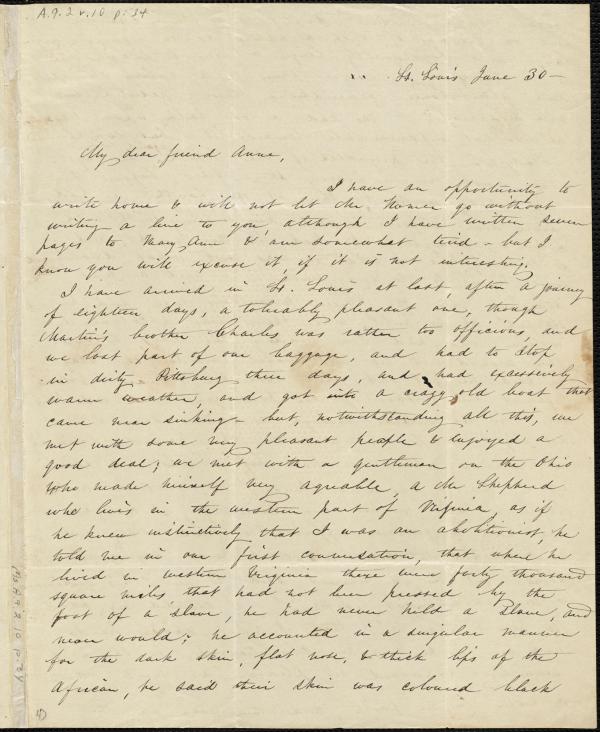 A.9.2 v.10 p.34
St. Louis June 30-
My dear friend Anne,
I have an opportunity to
write home & will not let Mr go without
writing a line to you, although I have written seven
pages to Mary Ann & am somewhat tired - but I
know you will excuse it, if it is not interesting.
I have arrived in St. Louis at last, after a journey
of eighteen days, a tolerably pleasant one, though
Martin's brother Charles was rather too officious, and
we lost part of our baggage, and had to stop
in dirty Pittsburg three days, and had excessively
warm weather, and got into a crazy old boat that
came near sinking - but, notwithstanding all this, we
met with some very pleasant people & enjoyed a
good deal; we met with a gentleman on the Ohio
who made himself very agreable, a Mr Shepherd
who lives in the western part of Virginia, as if
he knew instinctively that I was an abolitionist, he
told me in our first conversation, that where he
lived in western Virginia there were forty thousand
square miles, that had not been pressed by the
foot of a slave, he had never held a slave, and
never would; he accounted in a singular manner
for the dark skin, flat nose, & thick lips of the
African, he said their skin was coloured black
Ms A.9.2.10 p.34